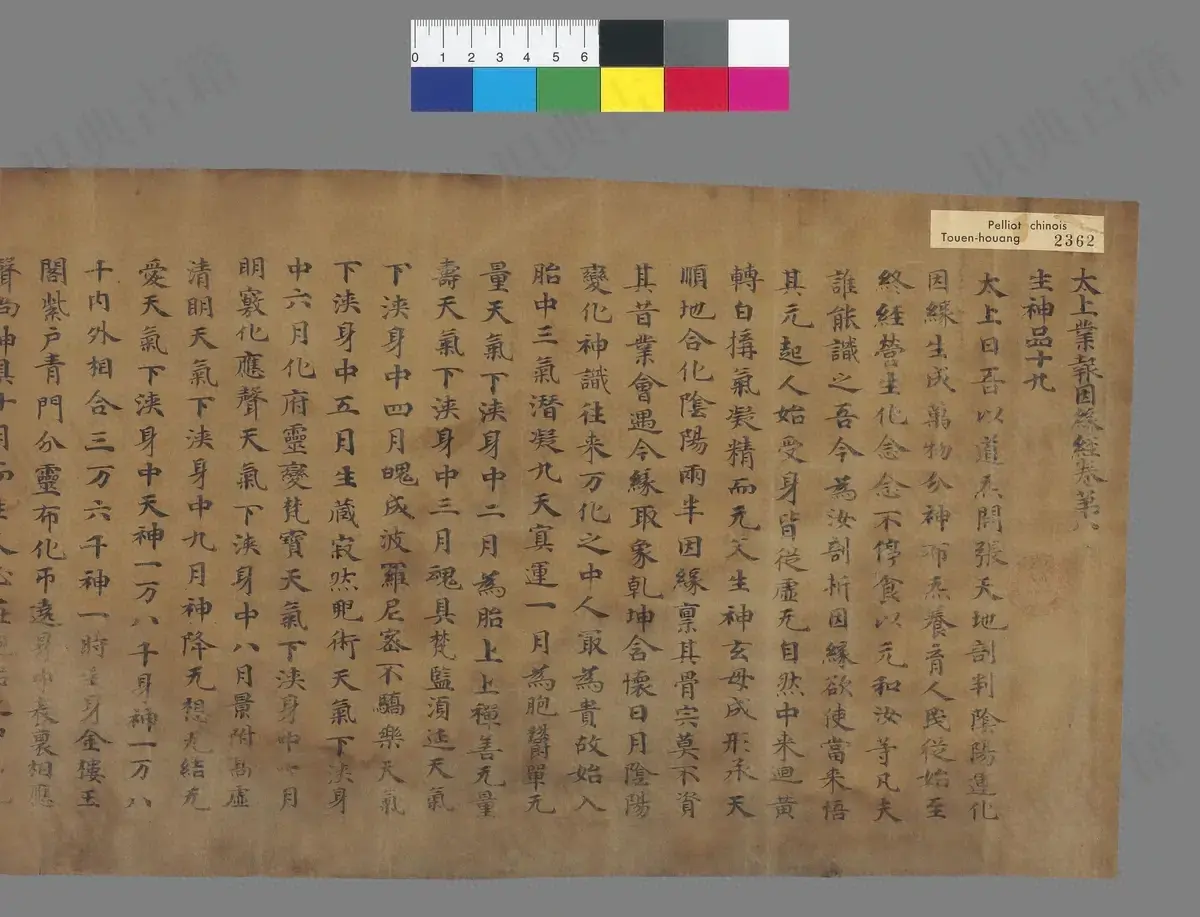 Pelliot chinois
Touen-houang 2362
0 1 2 3 4 5 6
太上業報因緣經卷第八
生神品十九
太上曰吾以道炁開張天地剖判陰陽運化
因緣生成萬物分神布炁養育人民從始至
終經營生化念念不停食以元和汝等凡夫
誰能識之吾今為汝剖析因緣欲使當來悟
其元起人始受身皆從虛无自然中来迴黃
轉白搆氣凝精而无父生神玄母成形承天
順地合化陰陽兩半因緣禀其骨宍莫不資
其昔業會遇今緣取象乾坤含懷日月陰陽
變化神識往来万化之中人㝡為貴故始入
胎中三氣潛凝九天冥運一月為胞欝單无
量天氣下浹身中二月為胎上上禪善无量
壽天氣下浹身中三月魂具梵監須延天氣
下浹身中四月魄成波羅尼宻不驕樂天氣
下浹身中五月生藏寂然兜術天氣下浹身
中六月化府靈變梵寶天氣下浹身中七月
明竅化應聲天氣下浹身中八月景附高虛
清明天氣下浹身中九月神降无想无結无
愛天氣下浹身中天神一万八千身神一万八
千内外相合三万六千神一時生身金樓玉
閣紫户青門分靈布化帀遶身中表裏相應
聲尚神具十月而生人
以典古籍